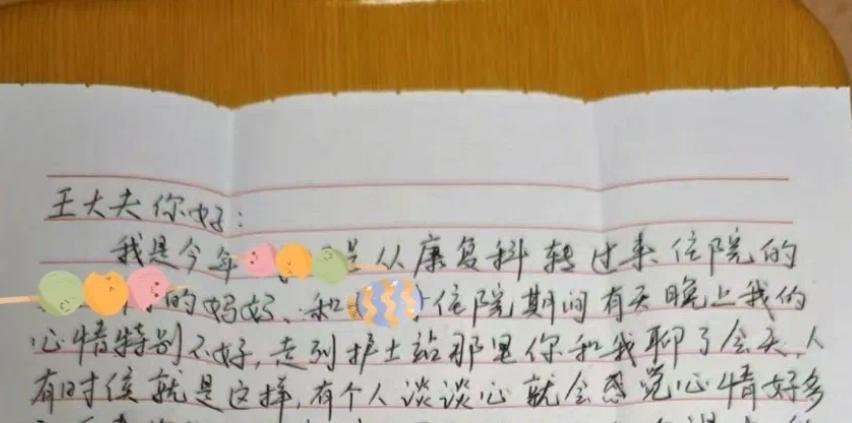 王大夫你好:
我是今年 是从康复科转过来住院的
的妈妈、和 住院期间有天晚上我的
心情特别不好,走到护士站那里你和我聊了会天,人
有时候就是这样,有个人谈谈心就会感觉心情好多